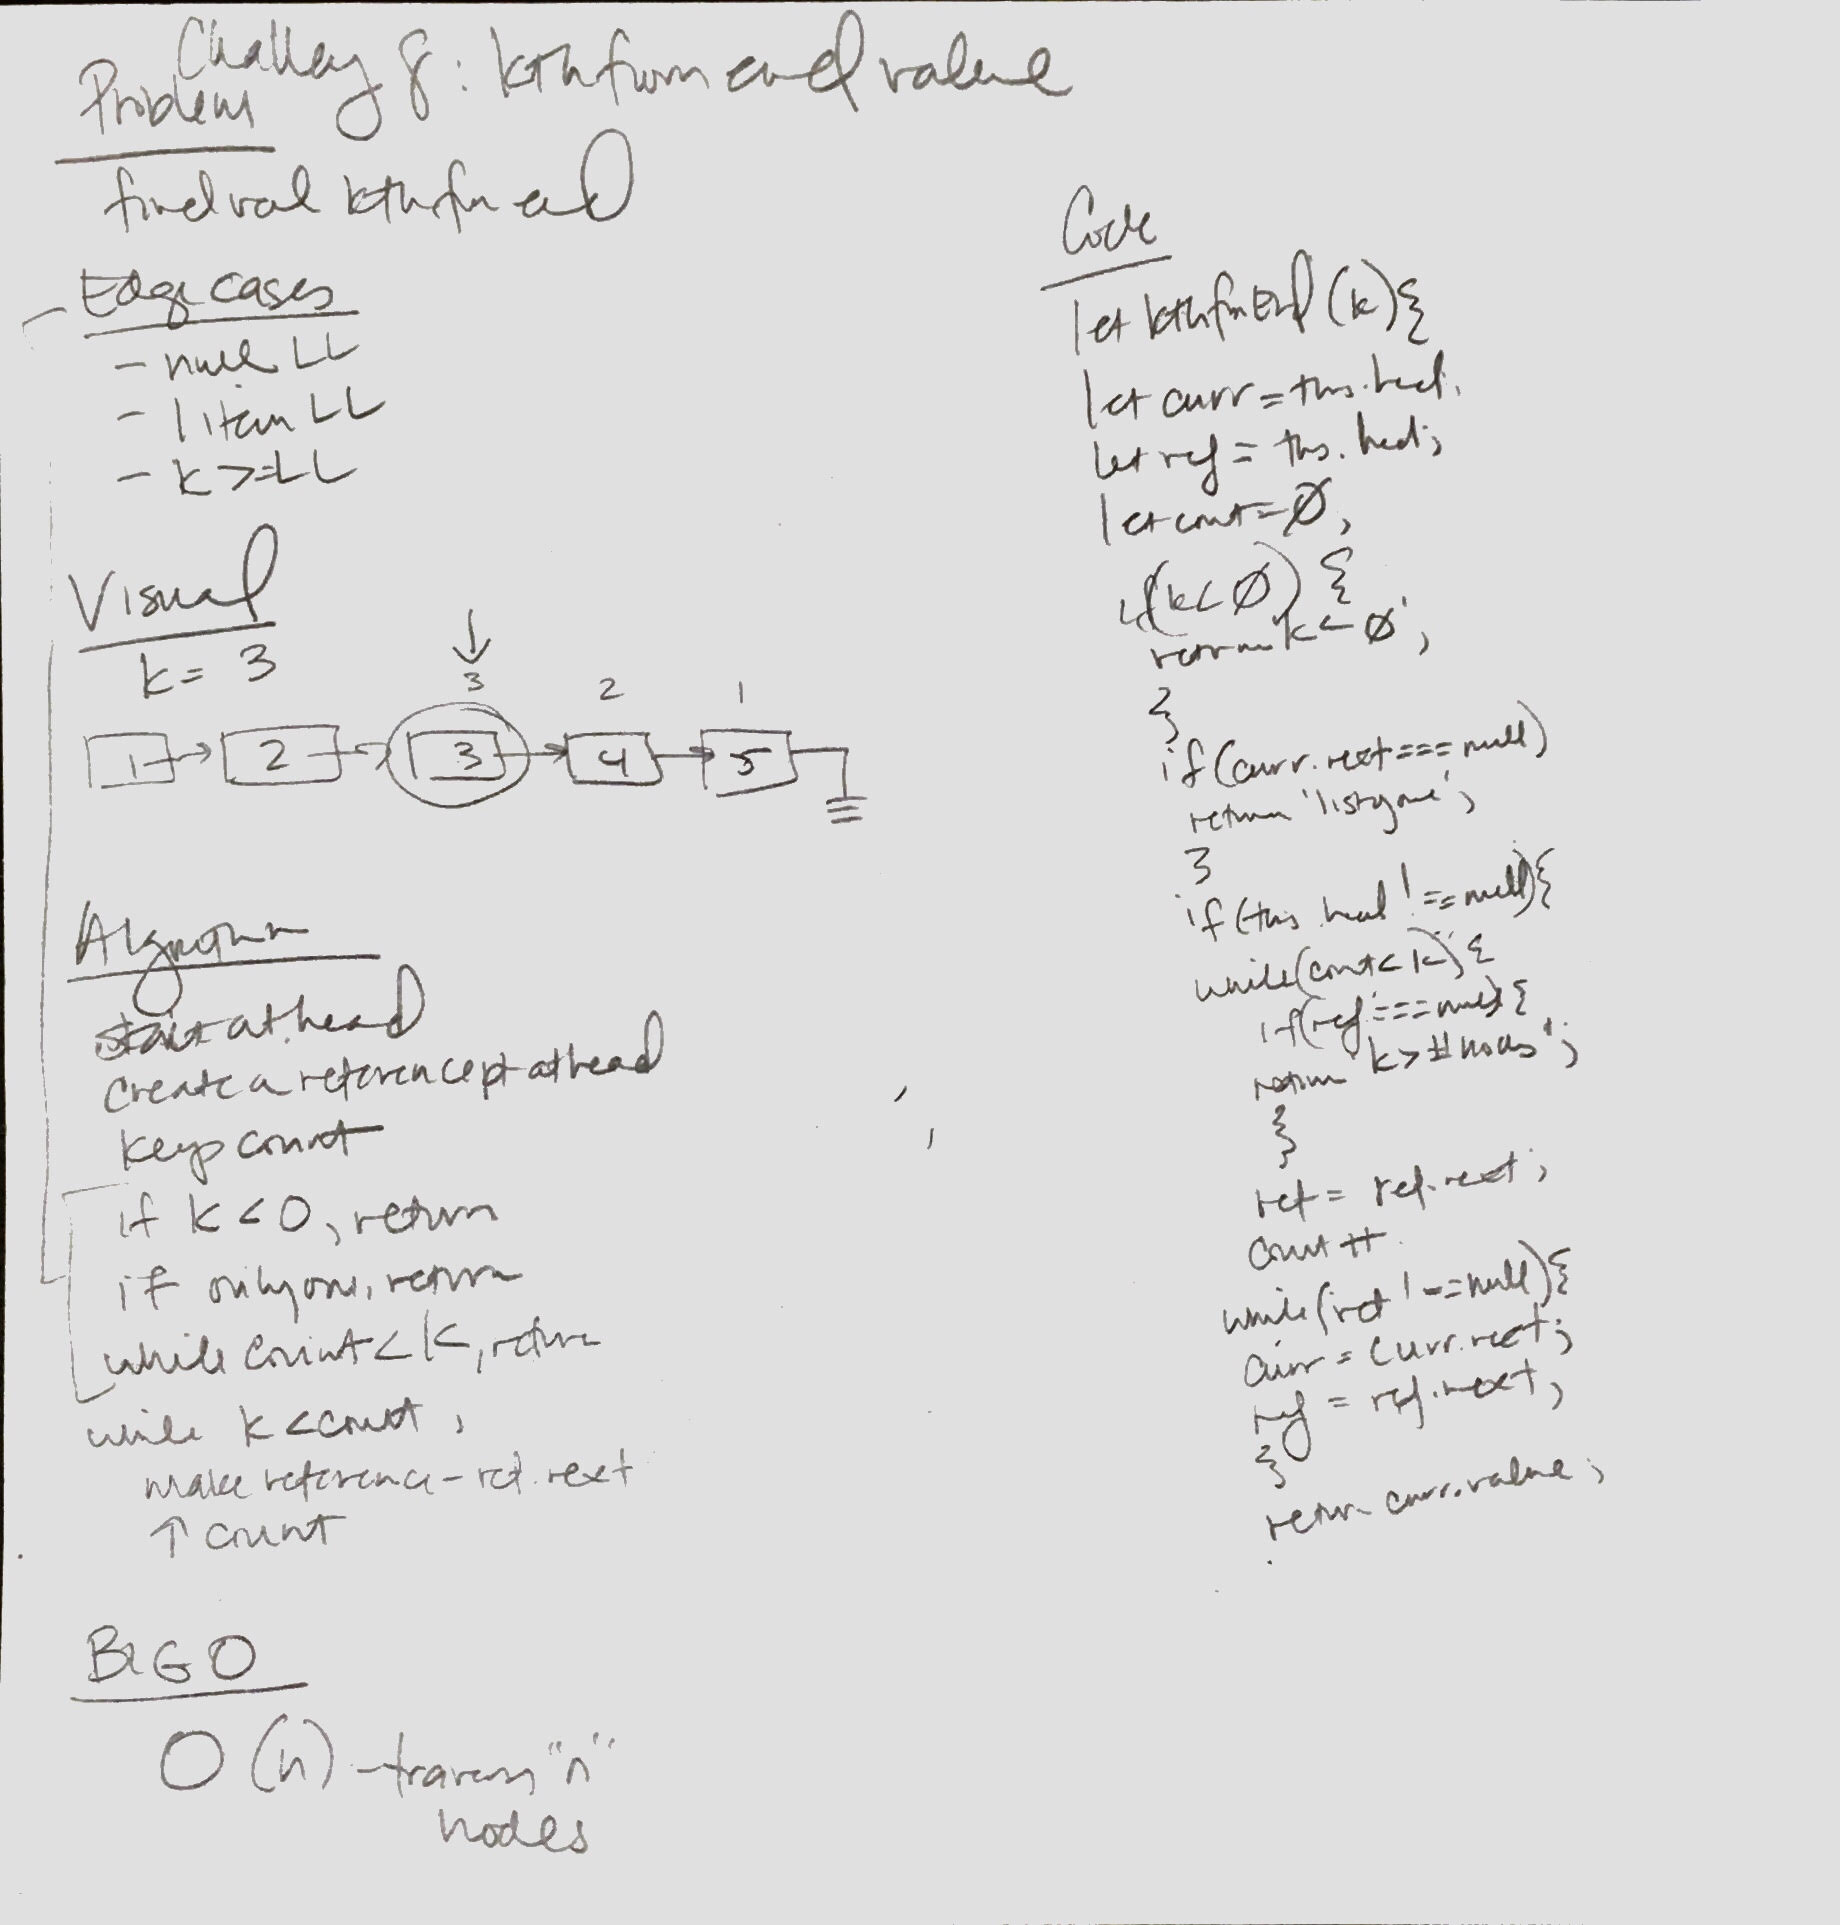 Challeng 8: kth from end value
Problem
find val kth frm end
Edge cases
- null LL
- 1 item LL
- k >= LL
Visual
k = 3
3 2 1
1 2 3 4 5
Algorithm
start at head
create a reference pt at head
keep count
if k < 0, return
if only one, return
while count < k, return
while k < count,
make reference - ref.next
↑ count
BIG O
O(n) - travers "n"
nodes
Code
let kthfrmEnd (k) {
let curr = this.head;
let ref = this.head;
let count = 0;
if (k < 0) {
return 'k < 0';
}
if (curr.next === null)
return 'list gone';
}
if (this.head !== null) {
while (count < k) {
if (ref === null) {
return 'k > # nodes';
}
ref = ref.next;
count ++
while (ref !== null) {
curr = curr.next;
ref = ref.next;
}
return curr.value;